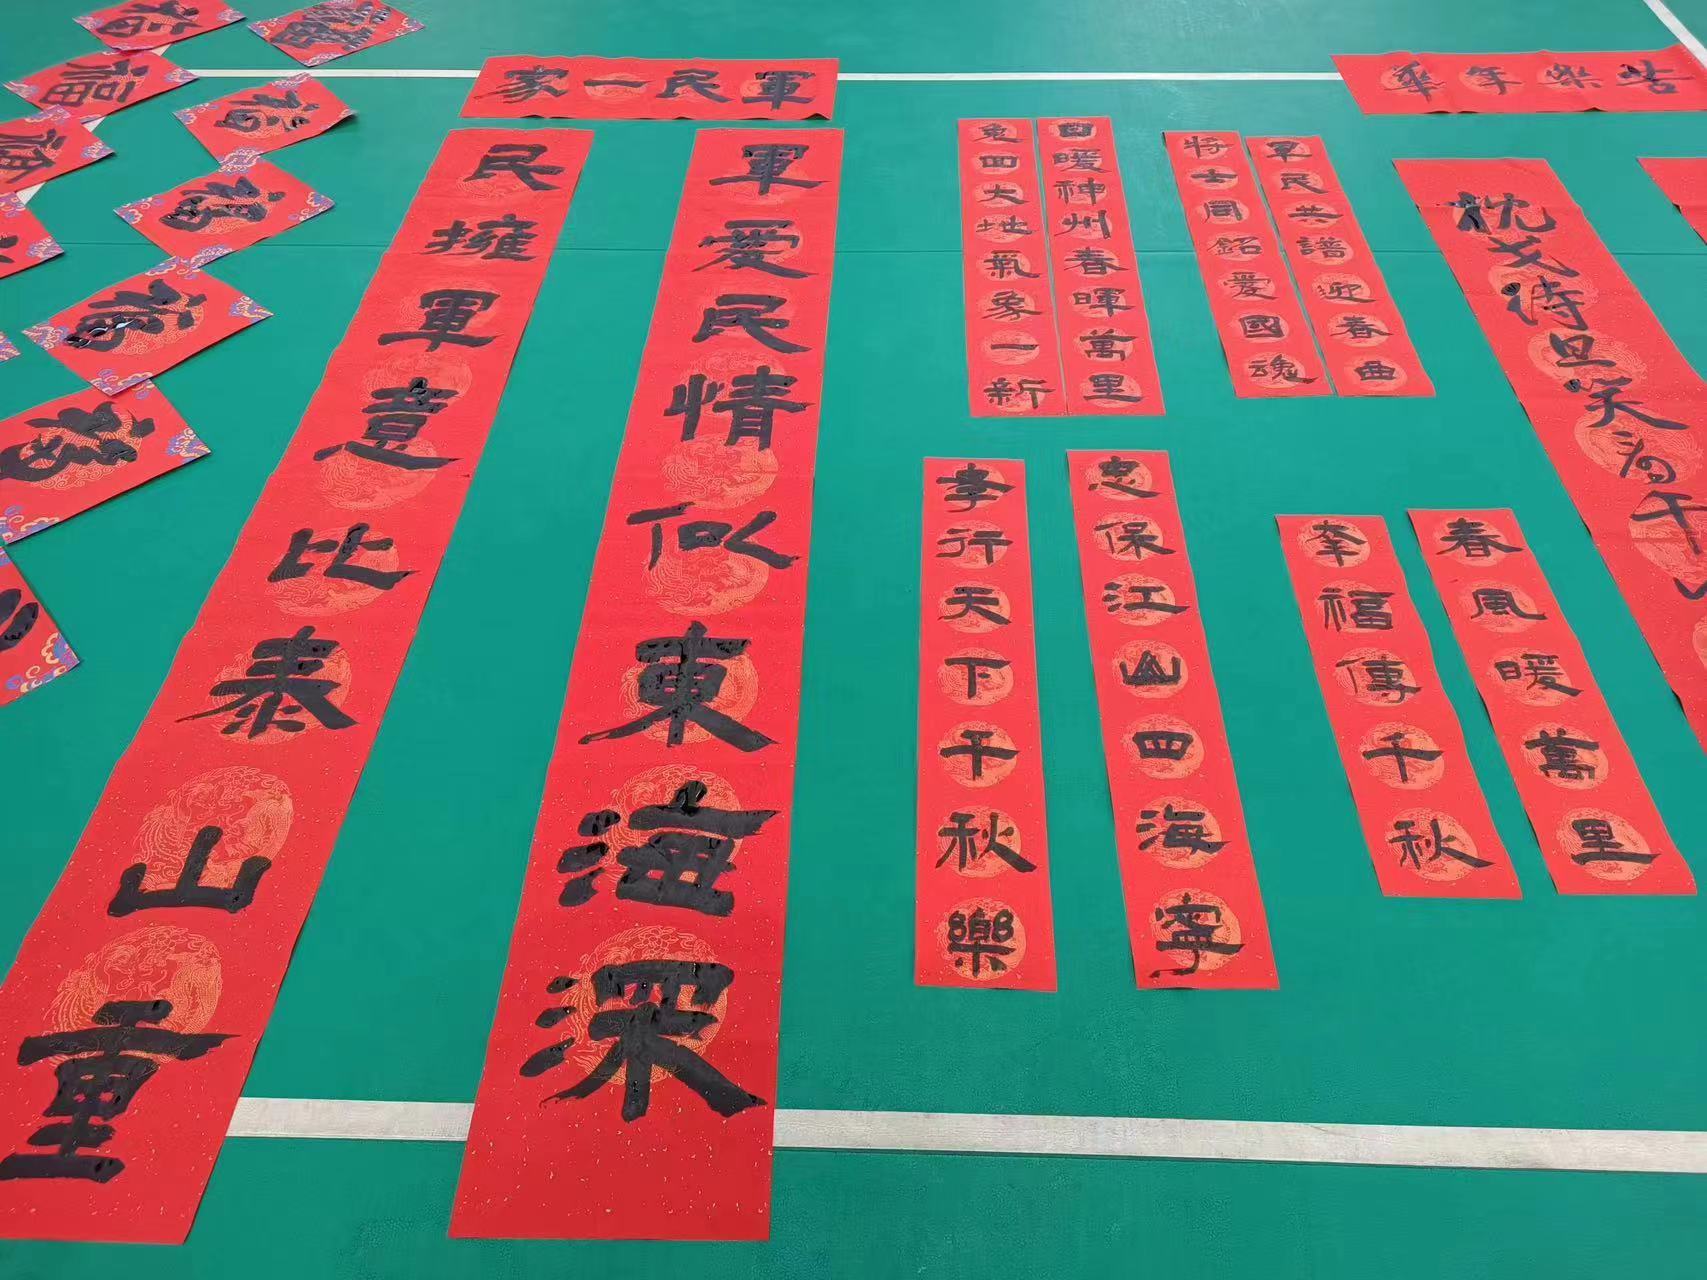 軍民一家
軍愛民情似東海深
民擁軍意比泰山重
日暖神州春暉萬里
兔回大地氣象一新
軍民共譜迎春曲
將士同銘愛國魂
忠保江山四海寧
孝行天下千秋樂
春風暖萬里
幸福傳千秋
苦樂年華
枕戈待旦笑看千
福
福
福
福
福
福
福